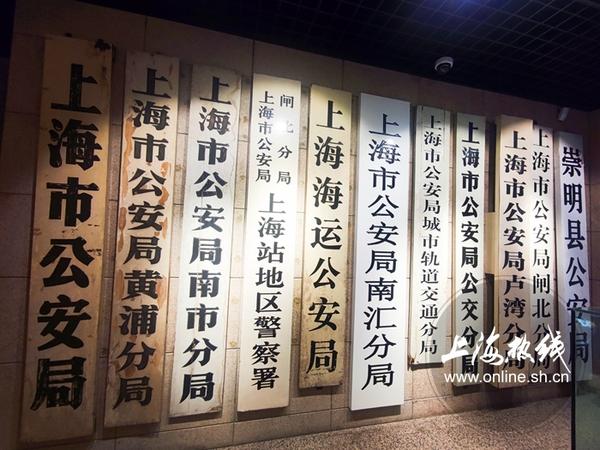 上海市公安局
上海市公安局黄浦分局
上海市公安局南市分局
上海市公安局
闸北分局
上海站地区警察署
上海海运公安局
上海市公安局南汇分局
上海市公安局城市轨道交通分局
上海市公安局公交分局
上海市公安局卢湾分局
上海市公安局闸北分局
崇明县公安局
上海热线
www.online.sh.cn